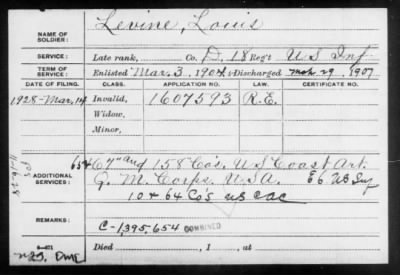 Levine, Louis
NAME OF SOLDIER:
SERVICE: Late rank, Co. D, 18 Reg't U S Inf
TERM OF SERVICE: Enlisted Mar. 3, 1904, Discharged 29, 1907
DATE OF FILING. CLASS. APPLICATION NO. LAW. CERTIFICATE NO.
1928-Mar. 14 Invalid, 1607593 R.E.
Widow,
Minor,
ADDITIONAL SERVICES: 654 67" and 158 Co's. U.S Coast Art.
G. M. Corps. U.S.A. E 6 US Inf
10 & 64 Co's US CAC
REMARKS: C-1,395,654 COMBINED
Died , 1 at